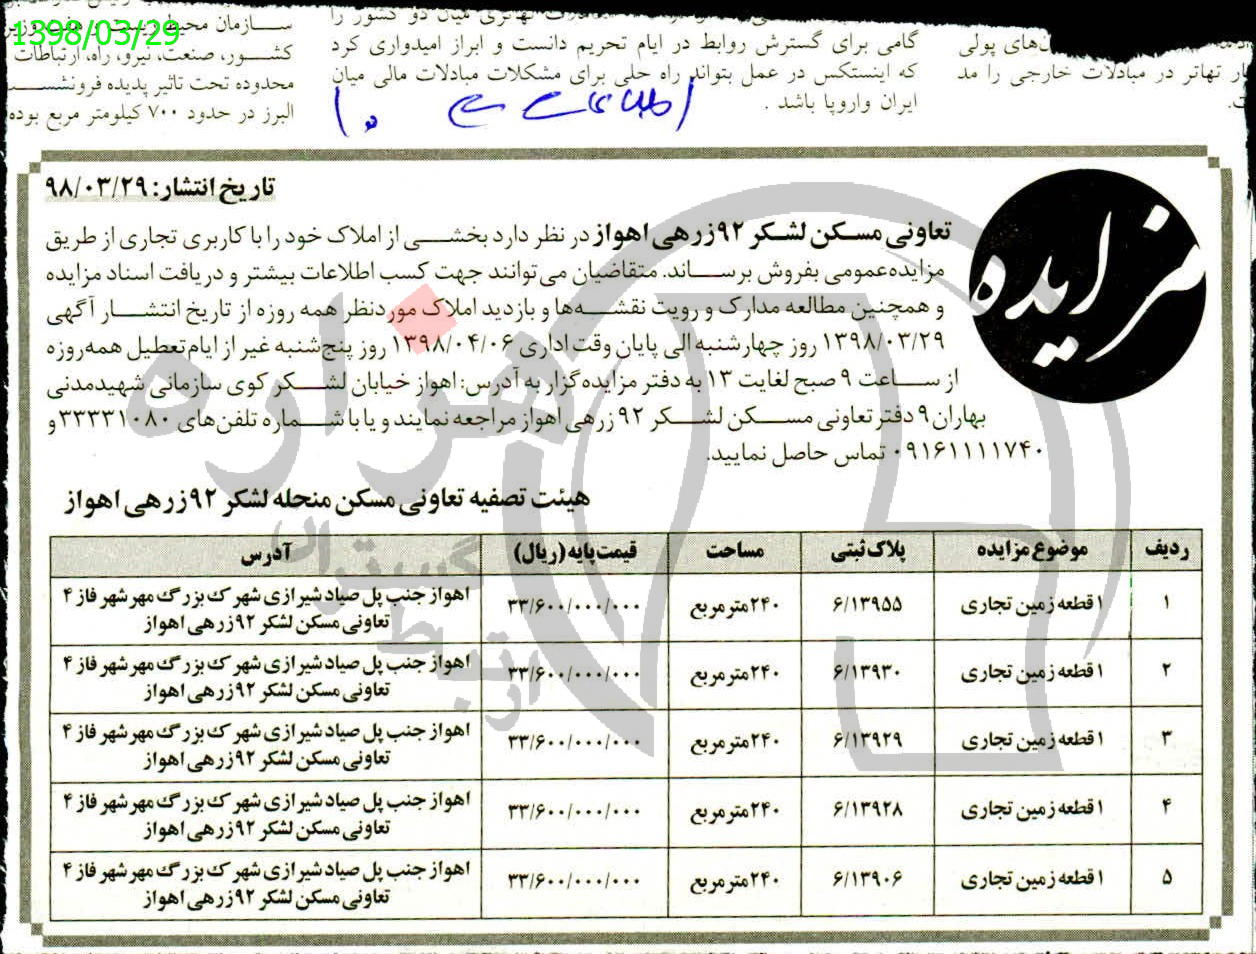 1398/03/29
گامی برای گسترش روابط در ایام تحریم دانست و ابراز امیدواری کرد
که اینستکس در عمل بتواند راه حلی برای مشکلات مبادلات مالی میان
ایران واروپا باشد .
سازمان محیط
کشور، صنعت، نیرو، راه، ارتباطات
محدوده تحت تاثیر پدیده فرونشست
البرز در حدود ۷۰۰ کیلومتر مربع بوده
های پولی
تهاتر در مبادلات خارجی را مد
تاریخ انتشار: ۹۸/۰۳/۲۹
مزایده
تعاونی مسکن لشکر ۹۲ زرهی اهواز در نظر دارد بخشی از املاک خود را با کاربری تجاری از طریق
مزایده عمومی بفروش برساند. متقاضیان می توانند جهت کسب اطلاعات بیشتر و دریافت اسناد مزایده
و همچنین مطالعه مدارک و رویت نقشه ها و بازدید املاک موردنظر همه روزه از تاریخ انتشار آگهی
۱۳۹۸/۰۳/۲۹ روز چهارشنبه الی پایان وقت اداری ۱۳۹۸/۰۴/۰۶ روز پنج شنبه غیر از ایام تعطیل همه روزه
از ساعت ۹ صبح لغایت ۱۳ به دفتر مزایده گزار به آدرس: اهواز خیابان لشکر کوی سازمانی شهیدمدنی
بهاران ۹ دفتر تعاونی مسکن لشکر ۹۲ زرهی اهواز مراجعه نمایند و یا با شماره تلفن های ۳۳۳۳۱۰۸۰ و
۰۹۱۶۱۱۱۱۷۴۰ تماس حاصل نمایید.
هیئت تصفیه تعاونی مسکن منحله لشکر ۹۲ زرهی اهواز
ردیف موضوع مزایده پلاک ثبتی مساحت قیمت پایه (ریال) آدرس
۱ ۱ قطعه زمین تجاری ۶/۱۳۹۵۵ ۲۴۰ مترمربع ۳۳/۶۰۰/۰۰۰/۰۰۰ اهواز جنب پل صیاد شیرازی شهرک بزرگ مهرشهر فاز ۴
تعاونی مسکن لشکر ۹۲ زرهی اهواز
۲ ۱ قطعه زمین تجاری ۶/۱۳۹۳۰ ۲۴۰ مترمربع ۳۳/۶۰۰/۰۰۰/۰۰۰ اهواز جنب پل صیاد شیرازی شهرک بزرگ مهرشهر فاز ۴
تعاونی مسکن لشکر ۹۲ زرهی اهواز
۳ ۱ قطعه زمین تجاری ۶/۱۳۹۲۹ ۲۴۰ مترمربع ۳۳/۶۰۰/۰۰۰/۰۰۰ اهواز جنب پل صیاد شیرازی شهرک بزرگ مهرشهر فاز ۴
تعاونی مسکن لشکر ۹۲ زرهی اهواز
۴ ۱ قطعه زمین تجاری ۶/۱۳۹۲۸ ۲۴۰ مترمربع ۳۳/۶۰۰/۰۰۰/۰۰۰ اهواز جنب پل صیاد شیرازی شهرک بزرگ مهرشهر فاز ۴
تعاونی مسکن لشکر ۹۲ زرهی اهواز
۵ ۱ قطعه زمین تجاری ۶/۱۳۹۰۶ ۲۴۰ مترمربع ۳۳/۶۰۰/۰۰۰/۰۰۰ اهواز جنب پل صیاد شیرازی شهرک بزرگ مهرشهر فاز ۴
تعاونی مسکن لشکر ۹۲ زرهی اهواز
هزاره
ارتباط
گستران